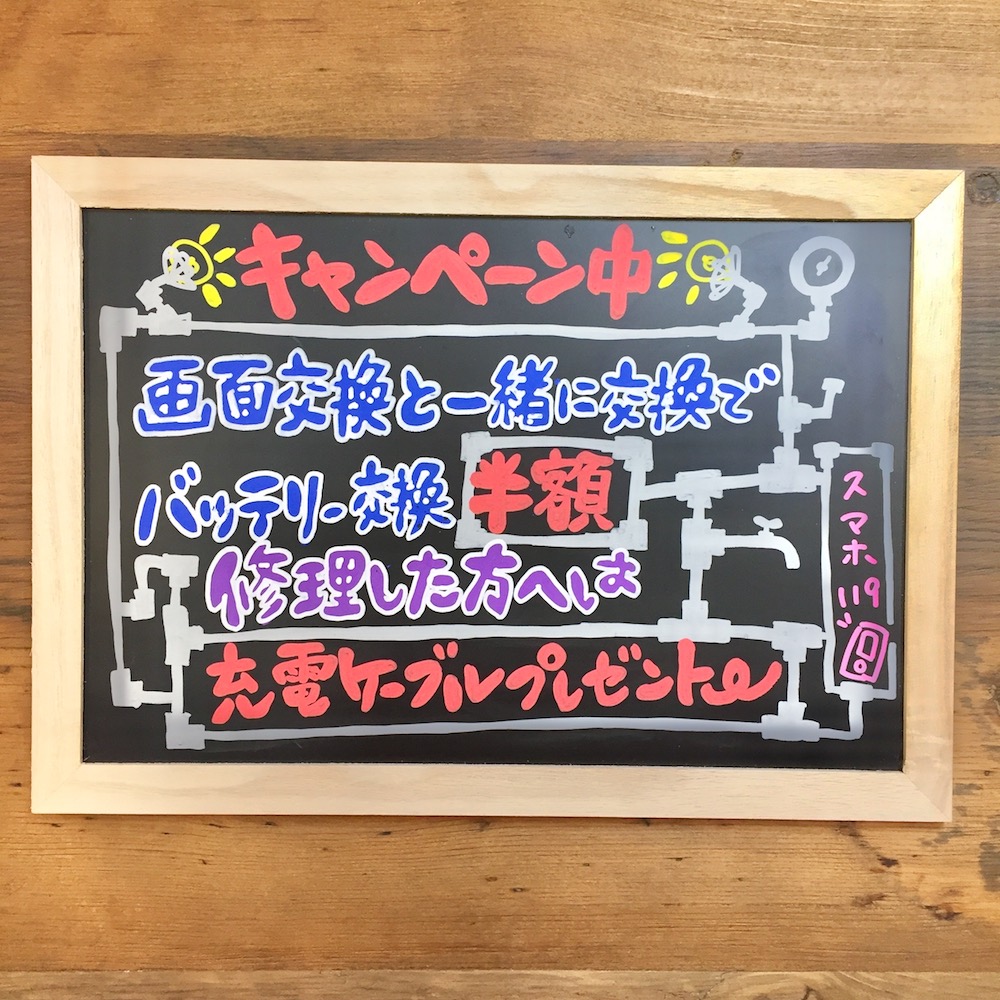 キャンペーン中
画面交換と一緒に交換で
バッテリー交換 半額
修理した方へは
充電ケーブルプレゼント
スマホ